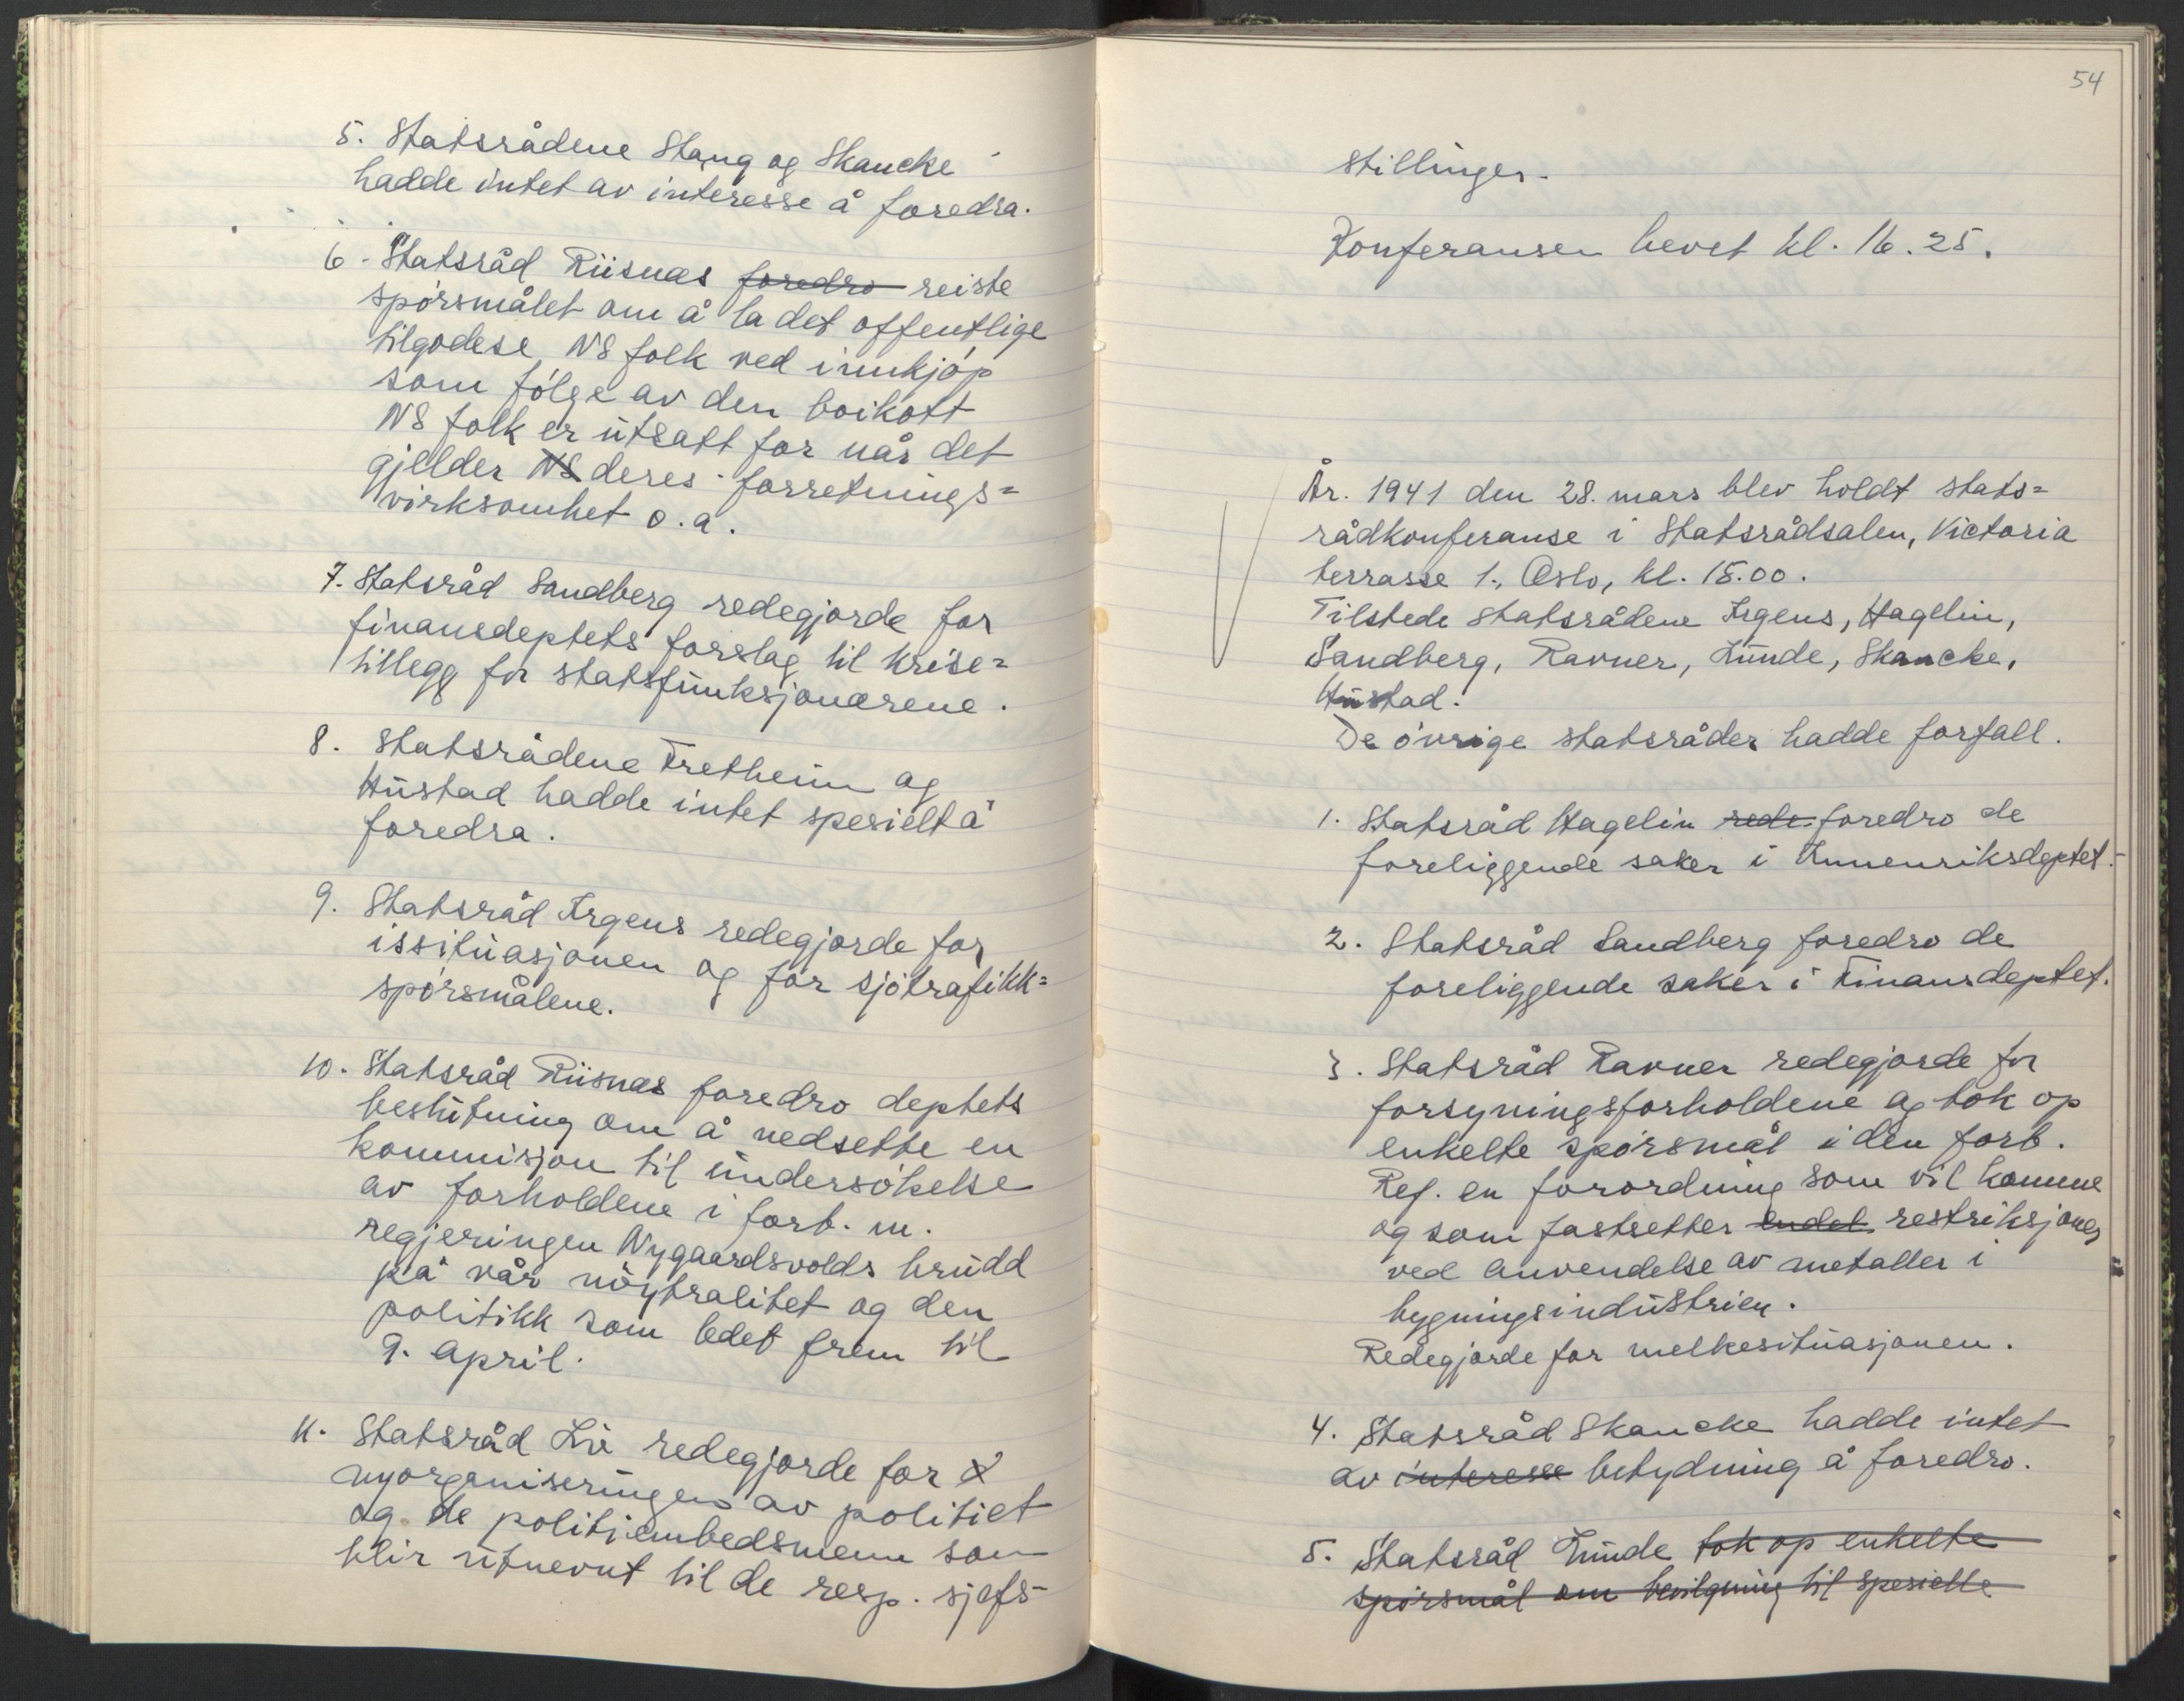 5. Statsrådene Stang og Skancke
hadde intet av interesse å foredra.
6. Statsråd Riisnæs foredro reiste
spørsmålet om å la det offentlige
tilgodese NS folk ved innkjøp
som følge av den boikott
NS folk er utsatt for når det
gjelder NS deres forretnings=
virksomhet o.a.
7. Statsråd Sandberg redegjorde for
finansdeptets forslag til krise=
tillegg for statsfunksjonærene.
8. Statsrådene Fretheim og
Hustad hadde intet spesielt å
foredra.
9. Statsråd Irgens redegjorde for
issituasjonen og for sjøtrafikk=
spørsmålene.
10. Statsråd Riisnæs foredro deptets
beslutning om å nedsette en
kommisjon til undersøkelse
av forholdene i forb. m.
regjeringen Nygaardsvolds brudd
på vår nøytralitet og den
politikk som ledet frem til
9. april.
11. Statsråd Lie redegjorde for
nyorganiseringen av politiet
og de politiembedsmenn som
blir utnevnt til de resp. sjefs-
54
stillinger.
Konferansen hevet kl. 16.25.
År. 1941 den 28. mars blev holdt stats=
rådkonferanse i Statsrådsalen, Victoria
terrasse 1., Oslo, kl. 15.00.
Tilstede statsrådene Irgens, Hagelin,
Sandberg, Ravner, Lunde, Skancke,
Hustad.
De øvrige statsråder hadde forfall.
1. Statsråd Hagelin rede foredro de
foreliggende saker i Innenriksdeptet.
2. Statsråd Sandberg foredro de
foreliggende saker i Finansdeptet.
3. Statsråd Ravner redegjorde for
forsyningsforholdene og tok op
enkelte spørsmål i den forb.
Ref. en forordning som vil komme
og som fastsetter endel restriksjoner
ved anvendelse av metaller i
bygningsindustrien.
Redegjorde for melkesituasjonen.
4. Statsråd Skancke hadde intet
av interesse betydning å foredro.
5. Statsråd Lunde tok op enkelte
spørsmål om bevilgning til spesielle